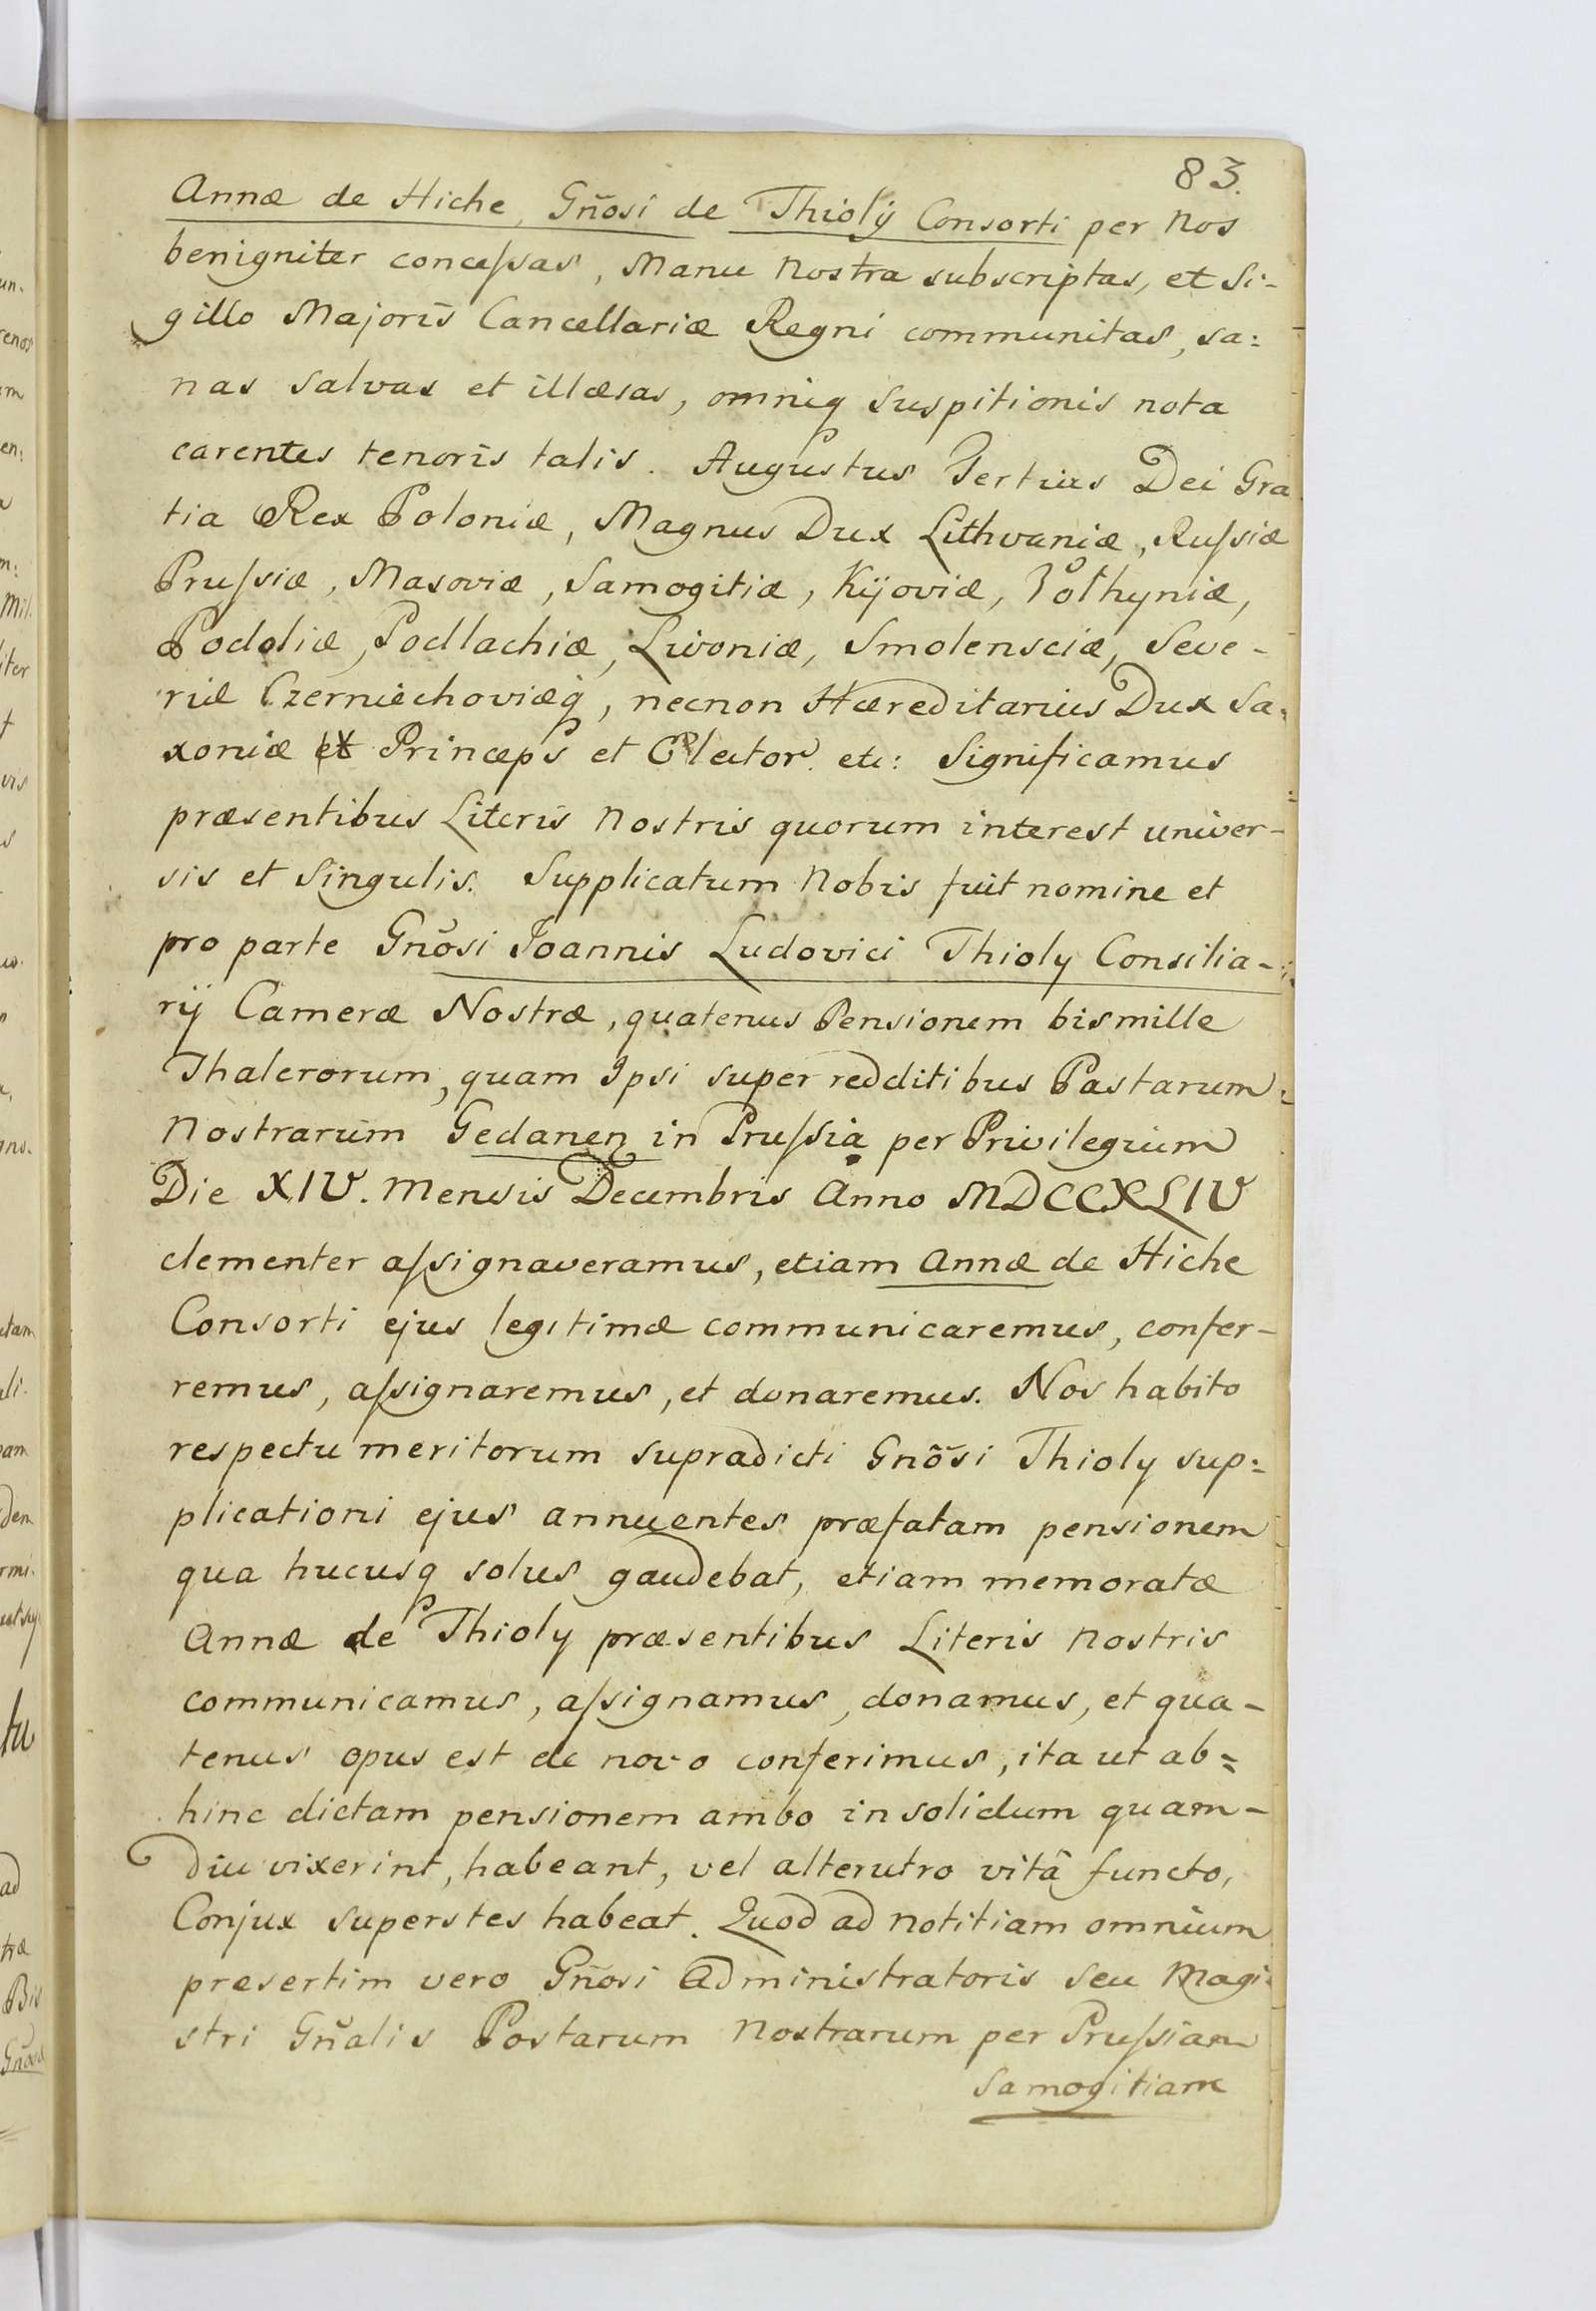 83.
Annæ de Hiche, Gñosi de Thiolÿ Consorti per Nos
benigniter concessas, Manu Nostra subscriptas, et Si-
gillo Majoris Cancellariæ Regni communitas, sa:
nas salvas et illæsas, omniq suspitionis nota
carentes tenoris talis. Augustus Tertius Dei Gra
tia Rex Poloniæ, Magnus Dux Lithvaniæ, Russiæ
Prussiæ, Masoviæ, Samogitiæ, Kijoviæ, Volhyniæ,
Podoliæ, Podlachiæ, Livoniæ, Smolensciæ, Seve-
riæ Czerniechoviæq, necnon Hæreditarius Dux Sa:
xoniæ et Princeps et Elector. etc: Significamus
præsentibus Literis Nostris quorum interest univer-
sis et Singulis. Supplicatum Nobis fuit nomine et
pro parte Gñosi Joannis Ludovici Thioly Consilia-
rij Cameræ Nostræ, quatenus Pensionem bismille
Thalerorum, quam Ipsi super redditibus Pastarum
Nostrarum Gedanen in Prussia per Privilegium
Die XIV. Mensis Decembris Anno MDCCXLIV
clementer assignaveramus, etiam Annæ de Hiche
Consorti ejus legitimæ communicaremus, confer-
remus, assignaremus, et donaremus. Nos habito
respectu meritorum supradicti Gnõsi Thioly sup:
plicationi ejus annuentes præfatam pensionem
qua hucusq solus gaudebat, etiam memoratæ
Annæ de Thioly præsentibus Literis Nostris
communicamus, assignamus, donamus, et qua-
tenus opus est de novo conferimus, ita ut ab=
hinc dictam pensionem ambo in solidum quam-
diu vixerint, habeant, vel alterutro vitâ functo,
Conjux superstes habeat. Quod ad notitiam omnium
presertim vero Gñosi Administratoris seu Magi
stri Gñalis Postarum Nostrarum per Prussiam
Samogitiam